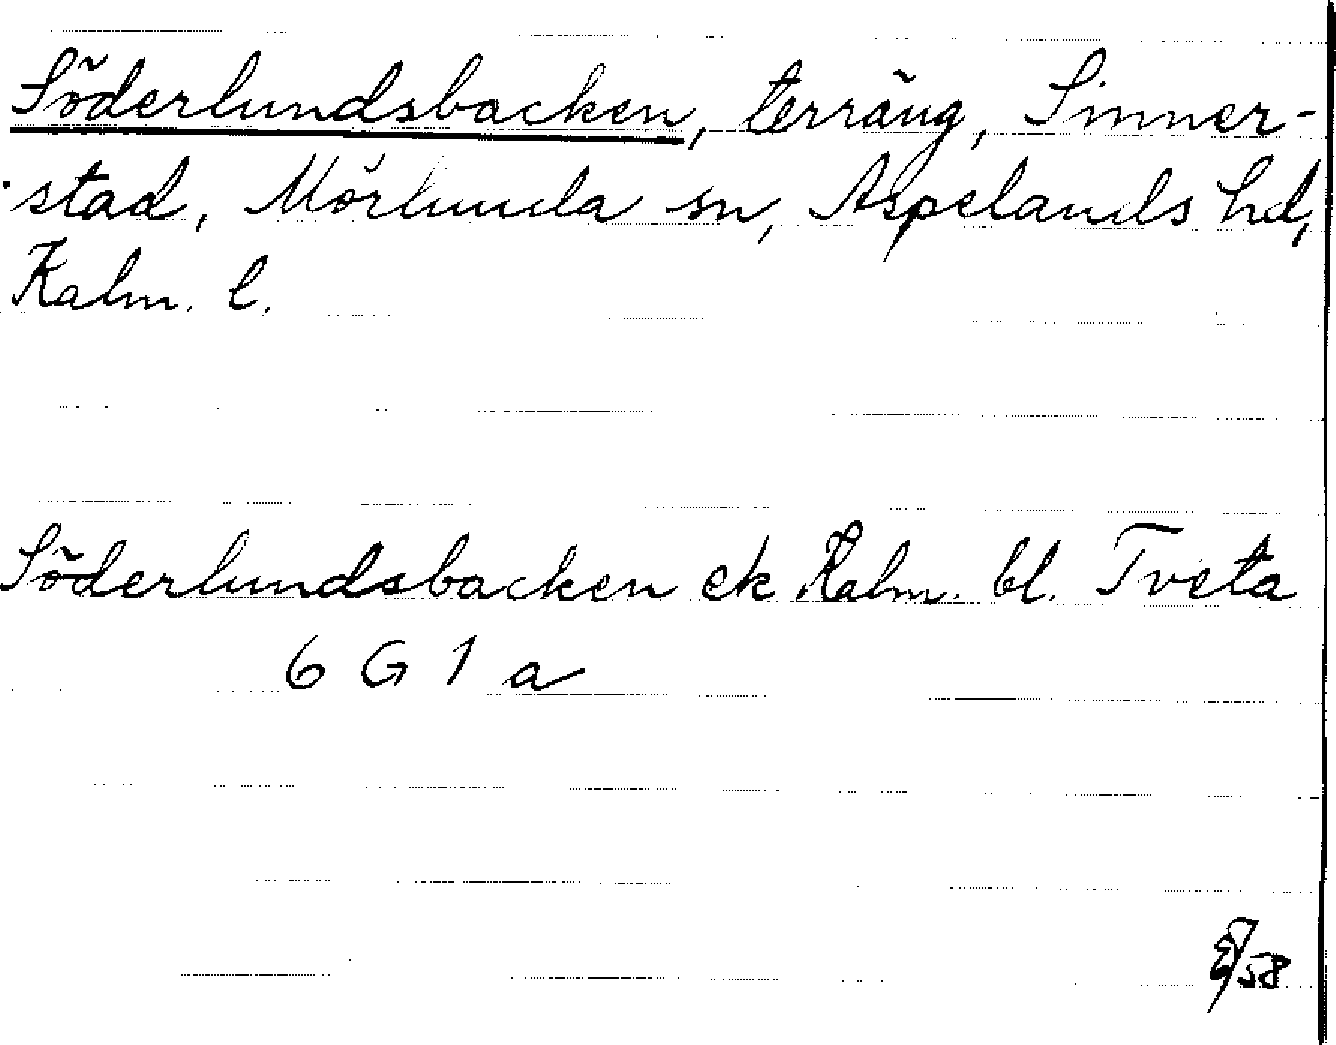 Söderlundsbacken, terräng, Sinner-
stad, Mörlunda sn, Aspelands hd,
Kalm. l.
Söderlundsbacken ek Kalm. bl. Tveta
6 G 1 a
/58